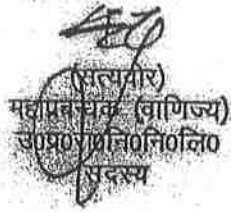 (सत्यवीर)
महाप्रबन्धक (वाणिज्य)
उ०प्र०रा०नि०नि०लि०
सदस्य